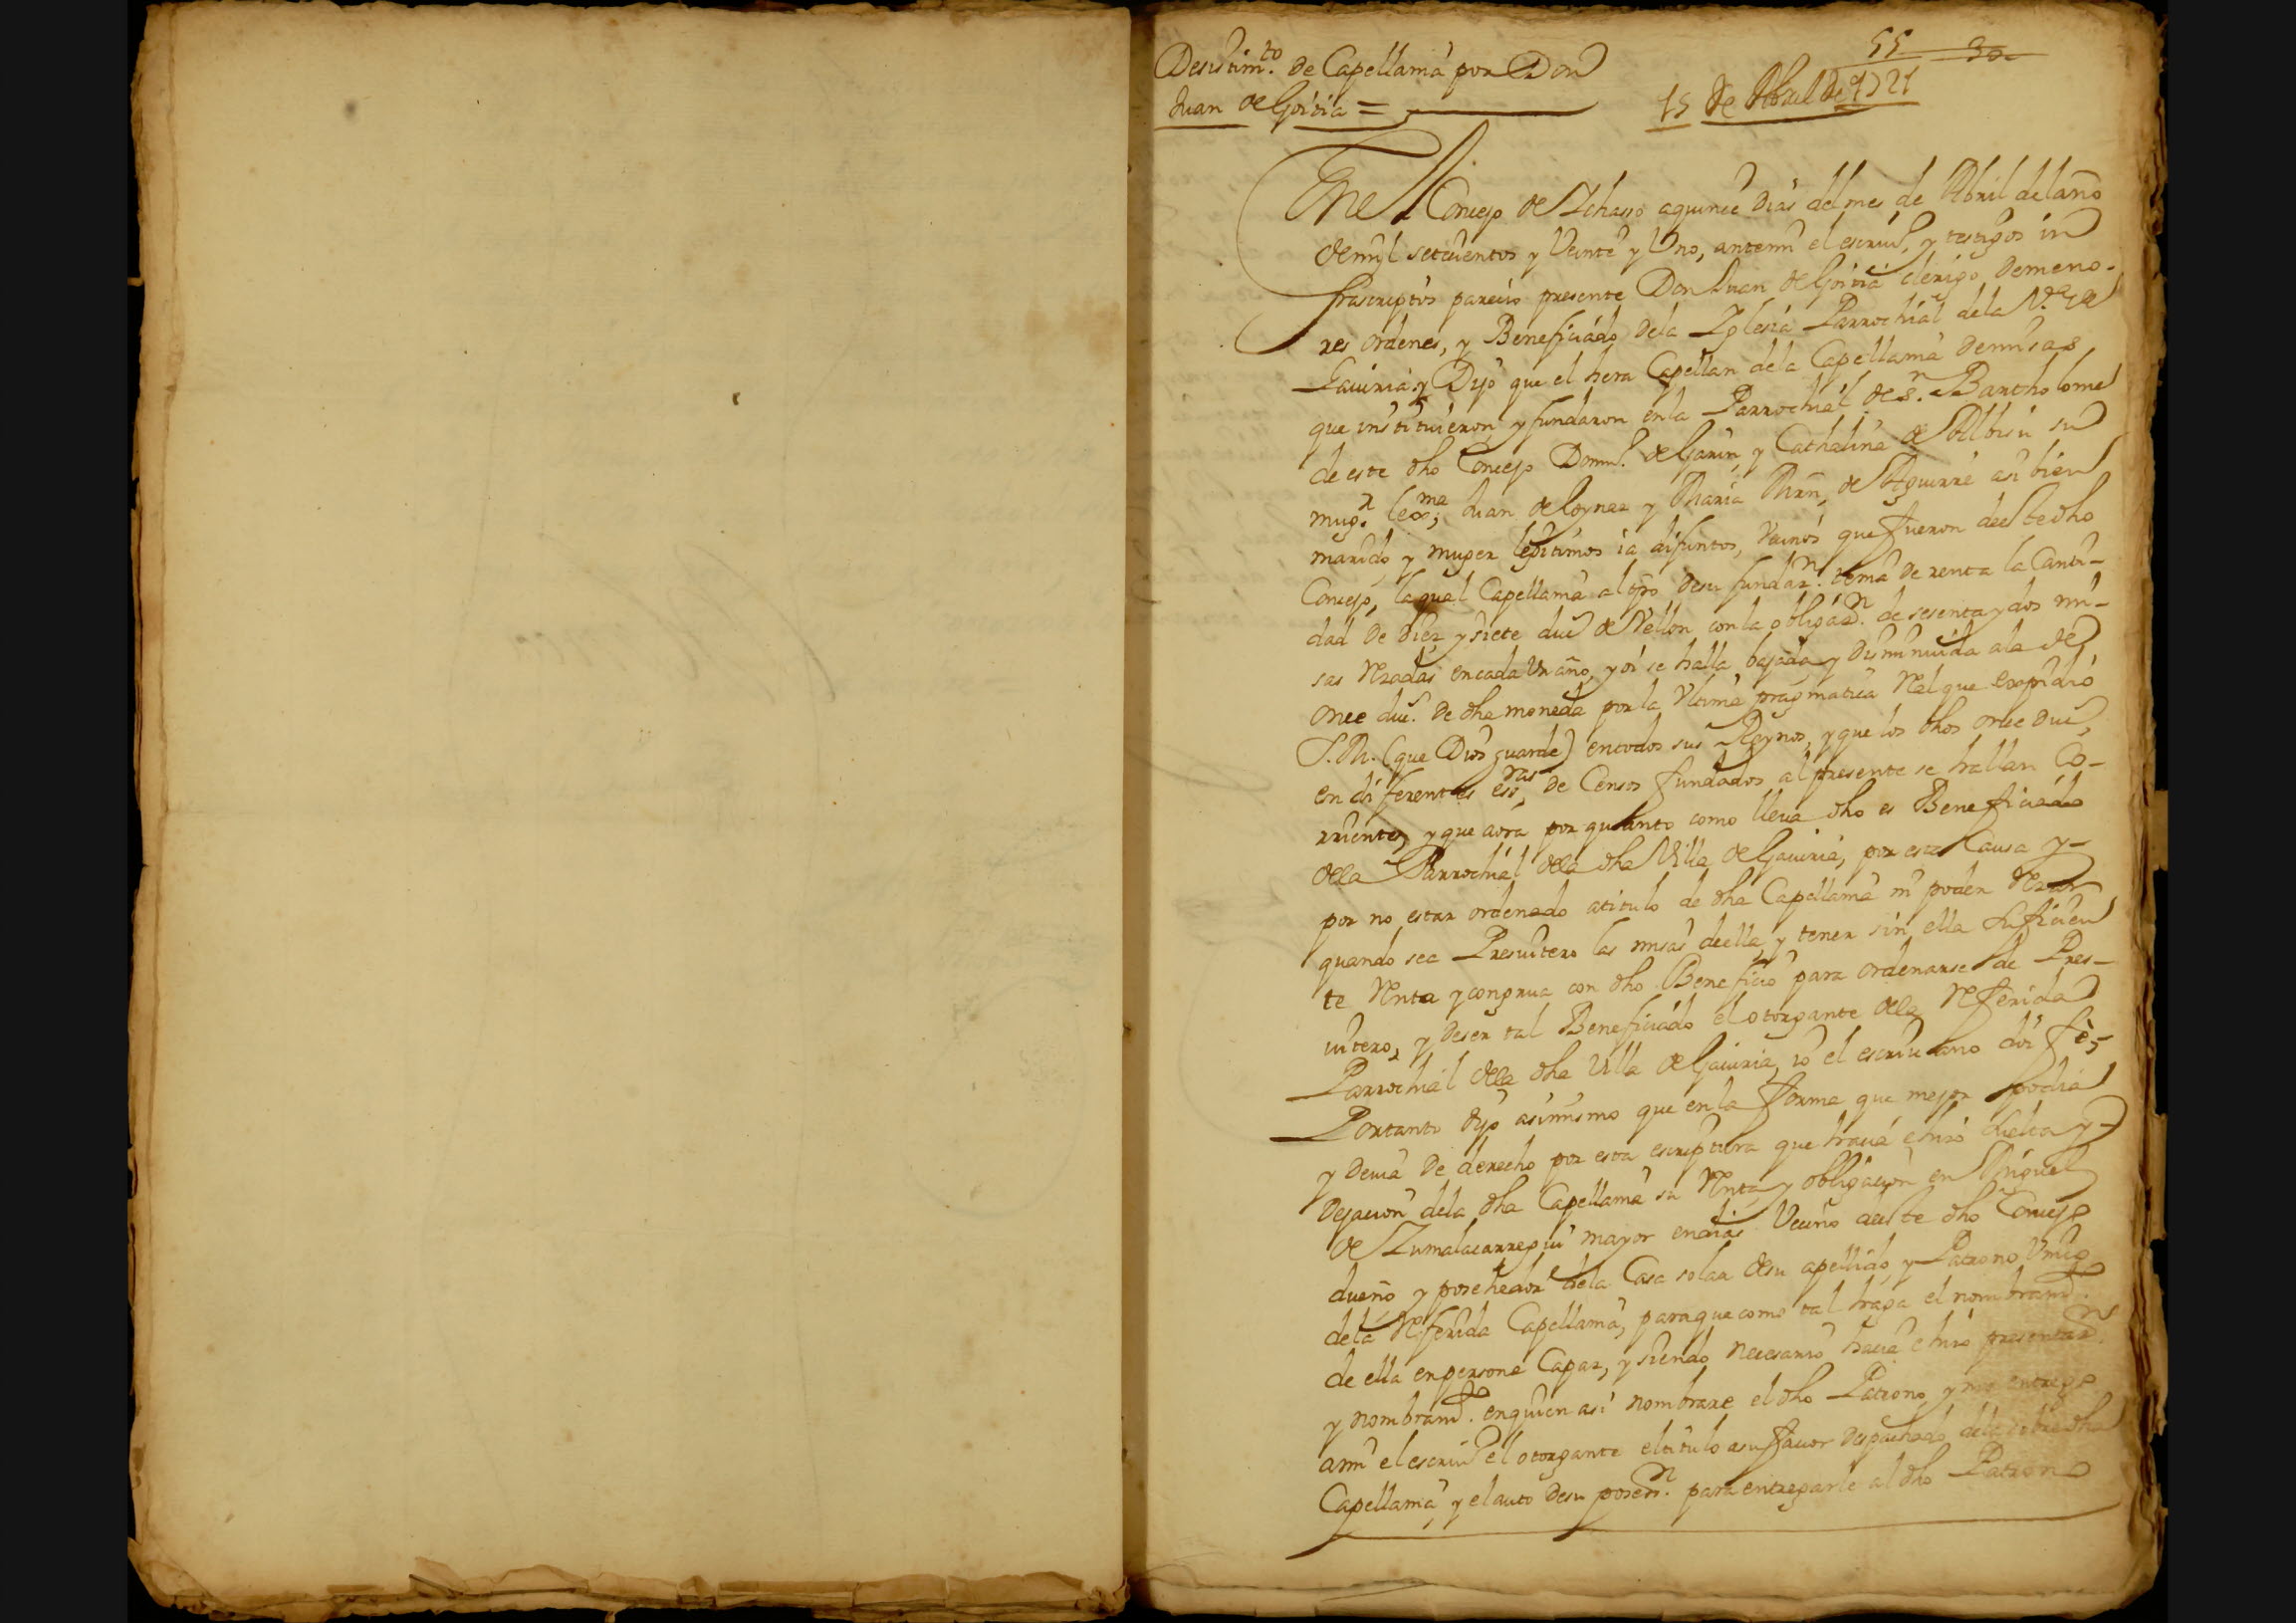 Desistim.to de Capellania por Don
Juan de Goitia =
55 30
15 de Abril de 1721
En el Concejo de Ichasso aquince dias del mes de Abril del año
de myl setecientos y Veinte y Uno, antemi el escriu.o y testigos in
frascriptos parecio presente Don Juan de Goitia clerigo demeno-
res ordenes, y Beneficiado dela Yglesia Parrochial dela V.a de
Gauiria, y Dijo que el hera Capellan dela Capellania demisas
que instituieron, y fundaron enla Parrochial de S.n Bartholome
de este dho Concejo Domin.o de Garin, y Cathalina de Albisu su
mug.r lex.ma; Juan de Loynaz y Maria Mrn de Aguirre asi bien
marido y muger legitimos ia difuntos, Vecinos que fueron deeste dho
Concejo, la qual Capellania al tpo desu fundaz.n tenia de renta la Canti-
dad de diez y siete duc.s de Vellon con la obligaz.n de sesenta y dos mi-
sas Rezadas en cada Un año, y oi se halla bajada y disminuida ala de
once duc.s de dha moneda por la Vltima pragmatica Real que expidio
S.M. (que Dios guarde) entodos sus Reynos, y que los dhos once duc.s
en diferentes ess.ras de Censos fundados al presente se hallan Co-
rrientes, y que aora por quanto como lleua dho es Beneficiado
dela Parrochial dela dha Villa de Gauiria, por esta Causa y-
por no estar ordenado atitulo de dha Capellania ni poder Rezar
quando sea Presuitero las misas deella, y tener sin ella suficien
te Renta y congrua con dho Beneficio para ordenarse de Pres-
uitero, y deser tal Beneficiado el otorgante dela Referida
Parrochial dela dha Villa de Gauiria, io el escriuano doi fè,
Portanto dijo asimismo que en la forma que mejor podia
y deuia de derecho por esta escriptura que hacia e hizo suelta y-
Dejacion dela dha Capellania su Renta, y obligacion en Miguel
de Zumalacarregui mayor endias Vecino deeste dho Concejo
dueño y posehedor dela Casa solar desu apellido, y Patrono Unico
dela Referida Capellania, paraque como tal haga el nombram.to
de ella en persona Capaz, y siendo necesario hacia e hizo presentaz.n
y nombram.to en quien asi nombrare el dho Patrono, y me entrego
ami el escriu.o el otorgante el titulo asu fauor despachado dela sobredha
Capellania, y el auto desu poses.n para entregarle al dho Patrono